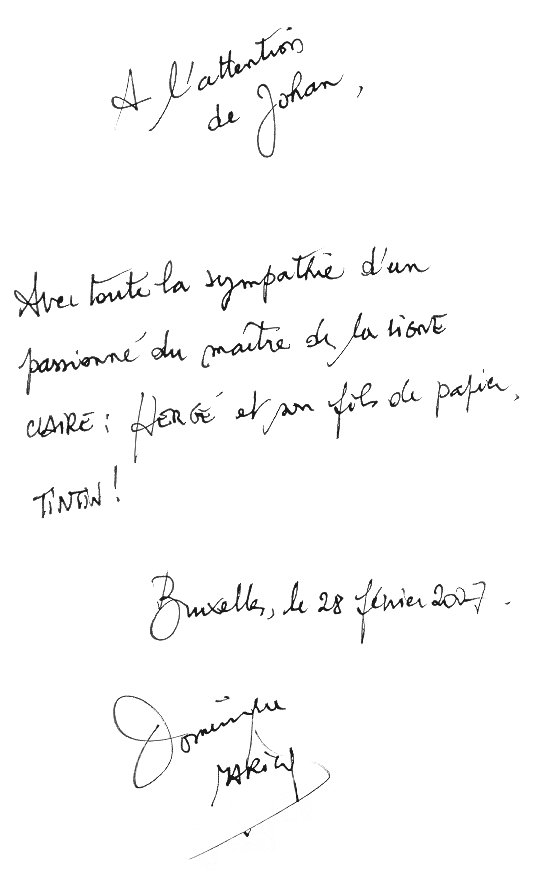 A l'attention
de Johan,
Avec toute la sympathie d'un
passionné du maître de la LIGNE
CLAIRE : HERGÉ et son fils de papier,
TINTIN !
Bruxelles, le 28 février 2007.
Dominique
MARICQ